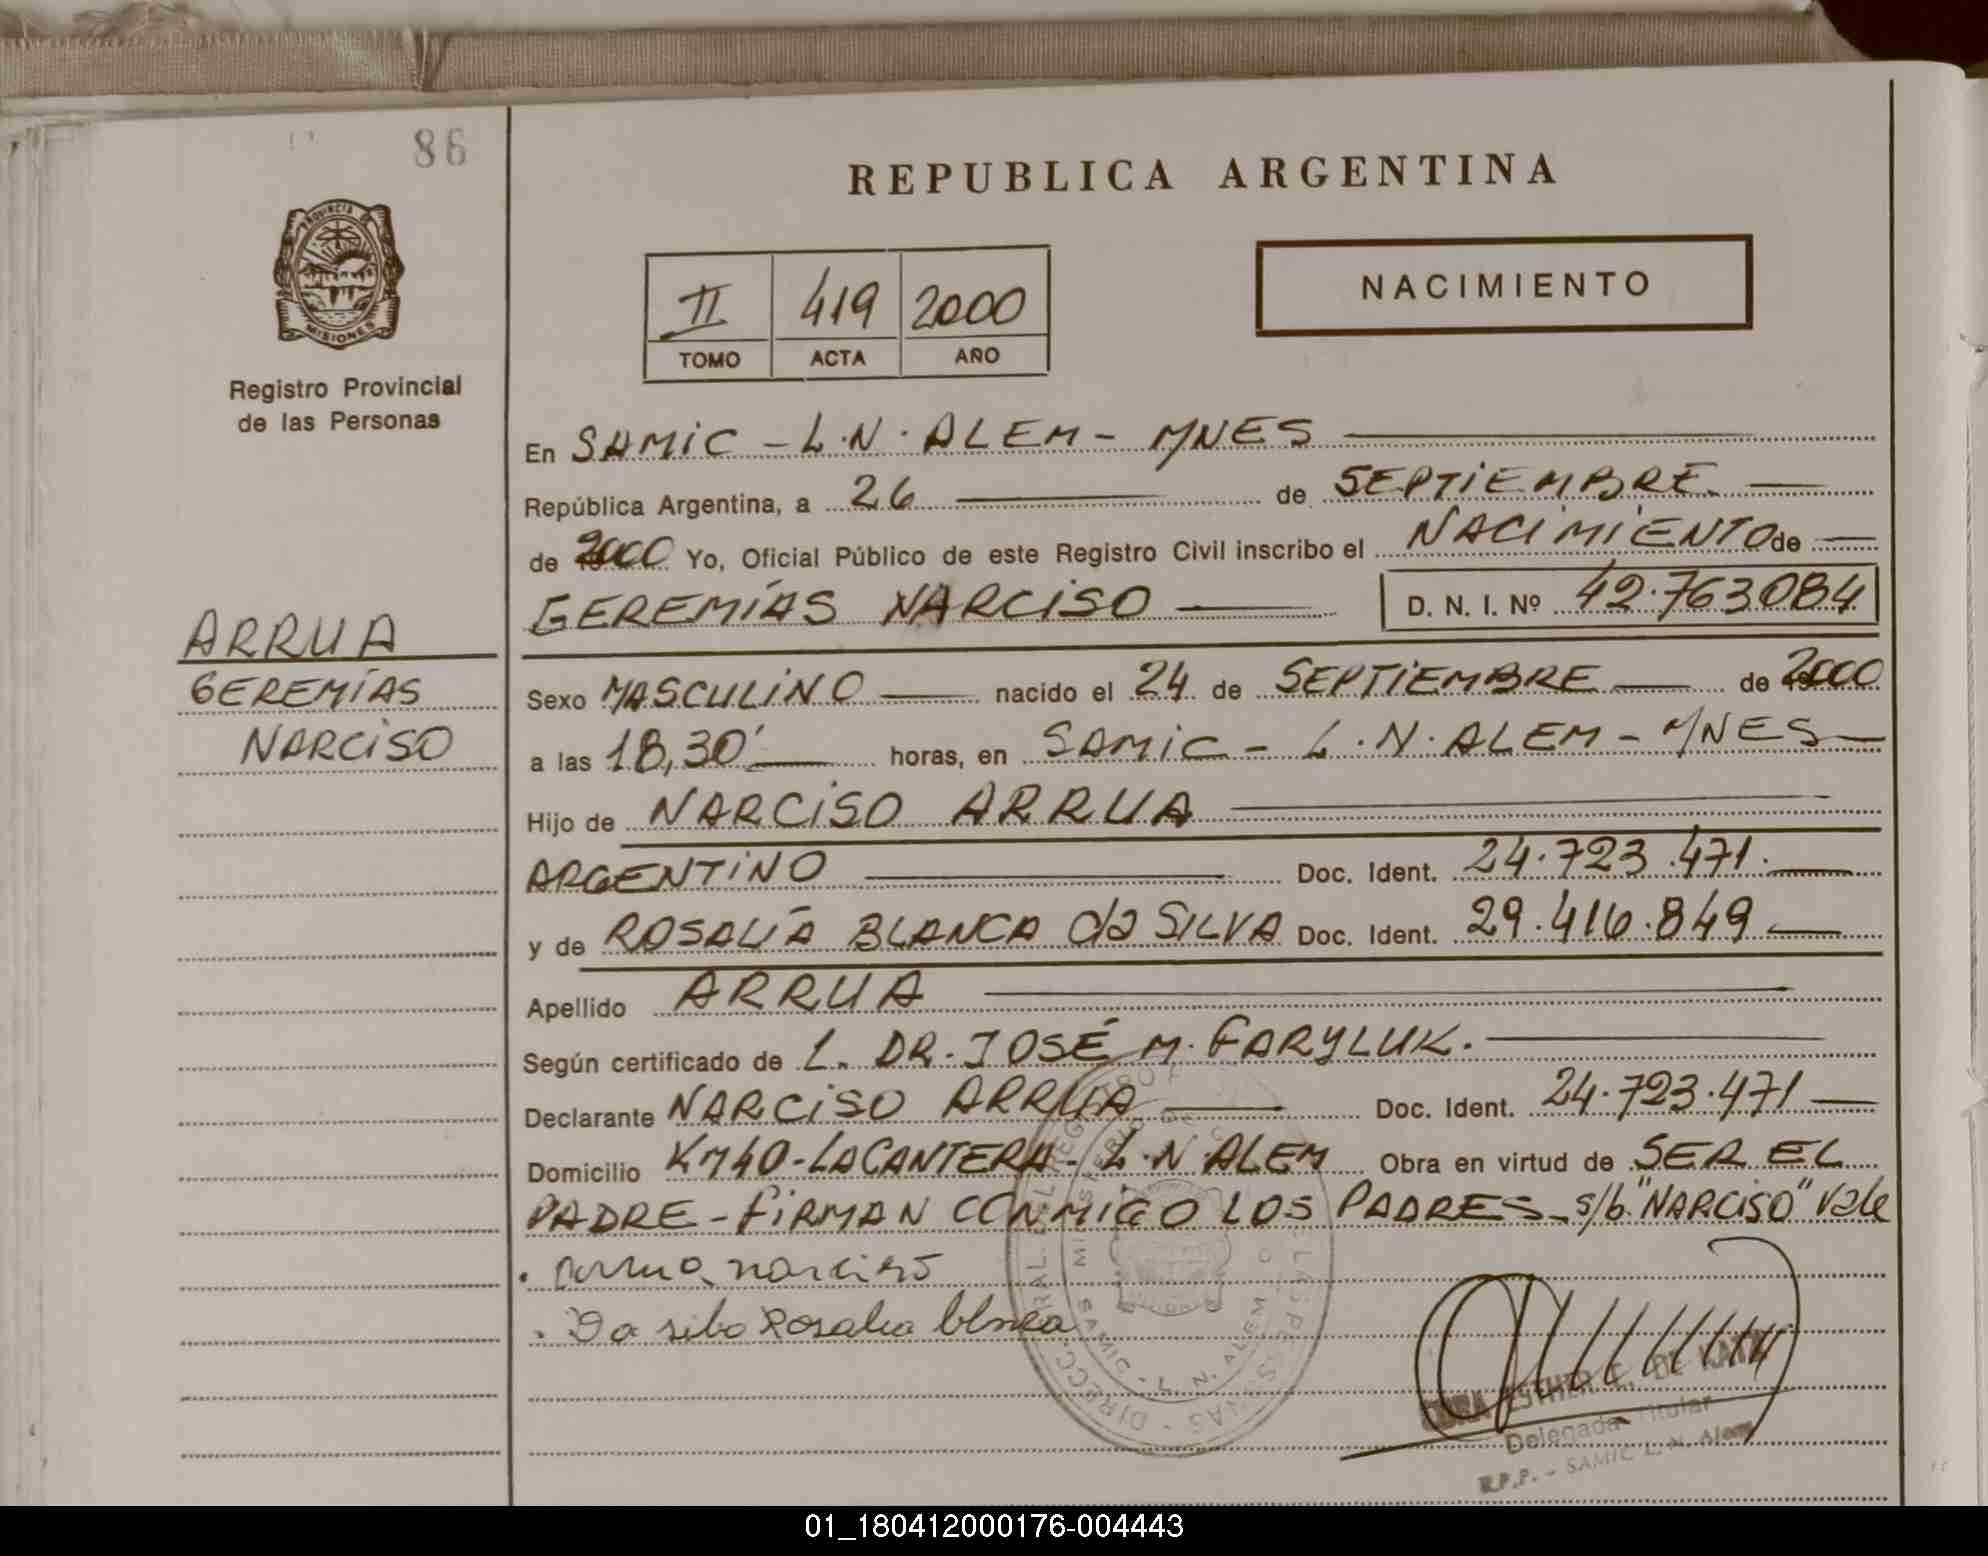 86
REPUBLICA ARGENTINA
PROVINCIA DE
MISIONES
Registro Provincial
de las Personas
II 419 2000
TOMO ACTA AÑO
NACIMIENTO
En SAMIC - L.N. ALEM - MNES
República Argentina, a 26 de SEPTIEMBRE
de 2000 Yo, Oficial Público de este Registro Civil inscribo el NACIMIENTO de
GEREMÍAS NARCISO D. N. I. Nº 42.763084
ARRUA
GEREMÍAS
NARCISO
Sexo MASCULINO nacido el 24 de SEPTIEMBRE de 2000
a las 18,30' horas, en SAMIC - L.N. ALEM - MNES
Hijo de NARCISO ARRUA
ARGENTINO Doc. Ident. 24.723.471.
y de ROSALÍA BLANCA da SILVA Doc. Ident. 29.416.849
Apellido ARRUA
Según certificado de L. DR. JOSÉ M. FARYLUK.
Declarante NARCISO ARRUA Doc. Ident. 24.723.471
Domicilio KM40-LA CANTERA - L.N ALEM Obra en virtud de SER EL
PADRE - FIRMAN CONMIGO LOS PADRES - s/b "NARCISO" Vale
Arrua narciso
Da silva Rosalia
ESTHER E. DE
Delegada Titular
R.P.P. - SAMIC L. N. Alem
01_180412000176-004443